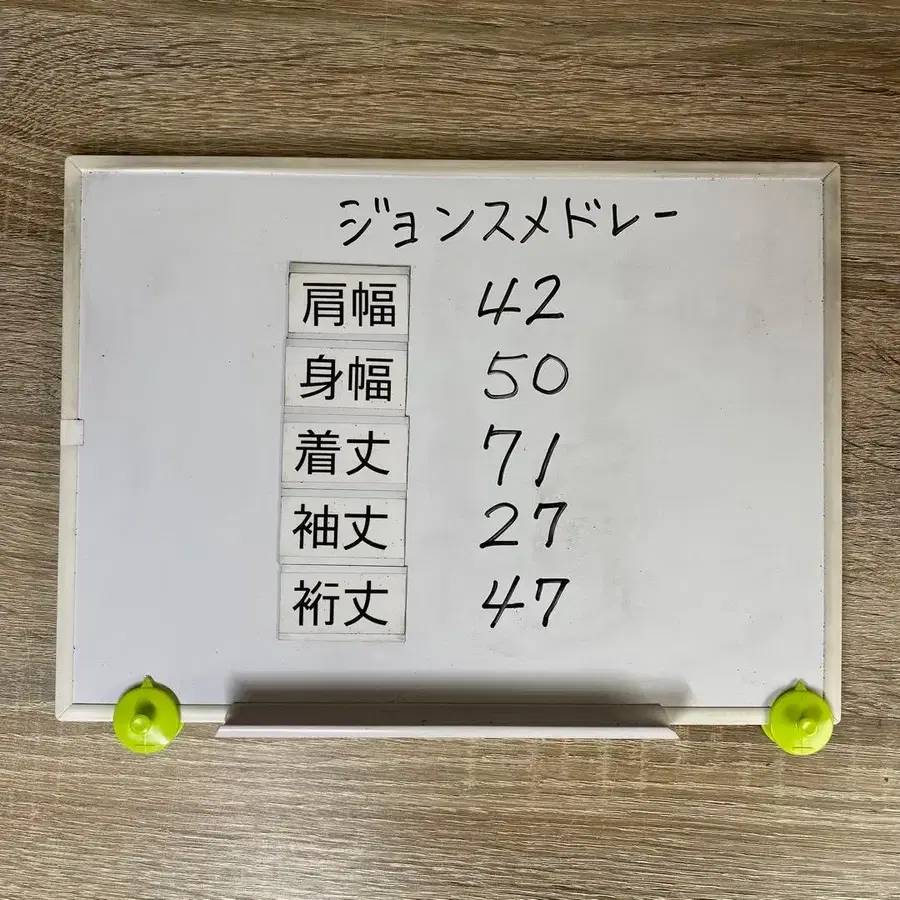 ジョンスメドレー
肩幅 42
身幅 50
着丈 71
袖丈 27
裄丈 47